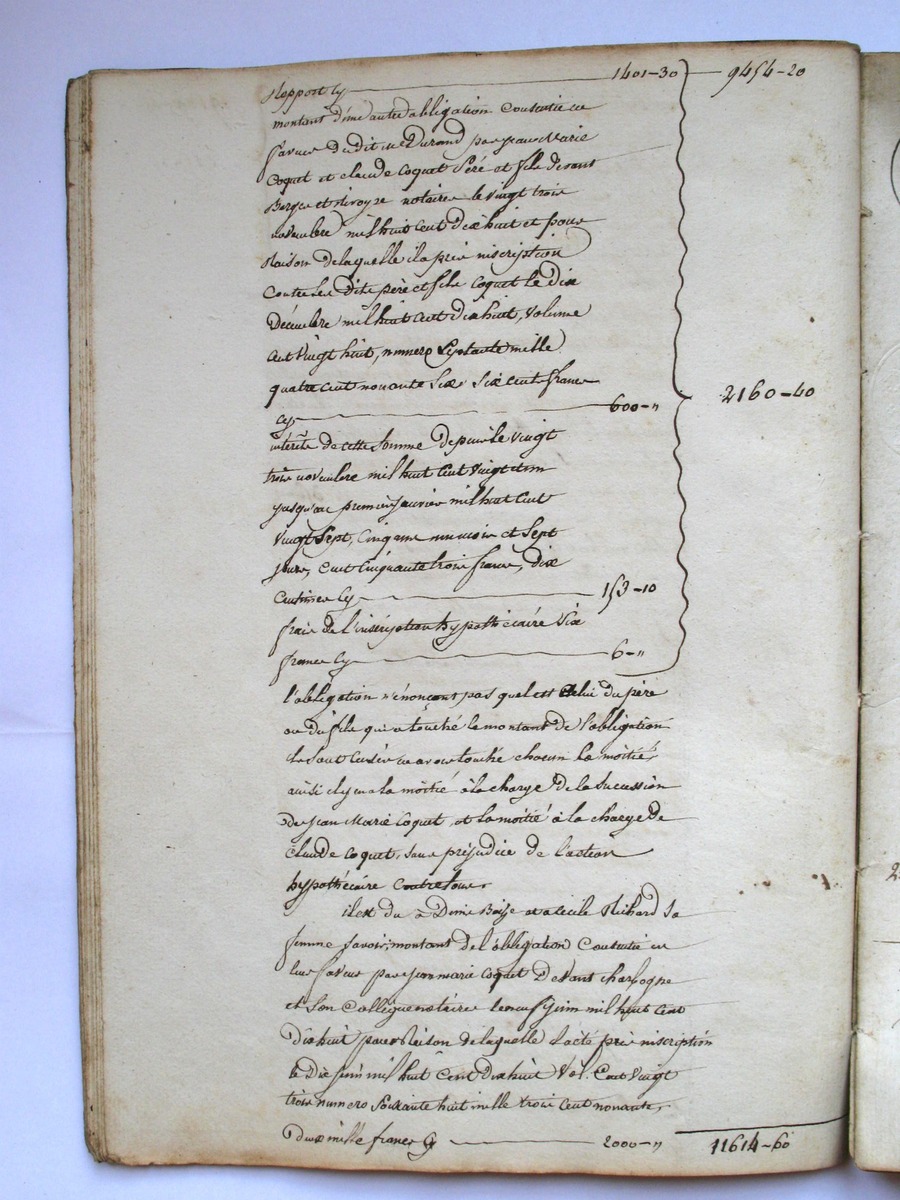 Rapport Cy 1401-30 9454-20
montant d'une autre obligation consentie en
faveur du dit me Durand par jean Marie
Coquet et claude Coquet Péré et fils devant
notaires le vingt trois
novembre mil huit Cent dix huit et pour
Raison de laquelle il a pris inscription
Contre les Dits père et fils Coquet le Dix
Décembre mil huit Cent dix huit, Volume
Cent vingt huit, numero Septante mille
quatre cent nonante Six, Six Cent francs
cy 600-" 2160-40
intérêts de cette Somme Depuis le vingt
trois novembre mil huit Cent vingt et un
jusqu'au premier janvier mil huit Cent
vingt Sept, Cinq ans un mois et Sept
jours, Cent Cinquante trois francs, dix
Centimes Cy 153-10
frais de l'inscription hypothécaire Six
francs Cy 6-"
l'obligation n'énonçant pas quel est Celui du père
ou du fils qui a touché le montant de l'obligation
ils Sont Censés en avoir touché chacun la moitié,
ainsi il y en a la moitié à la charge De la Sucession
de jean Marie Coquet, et la moitié à la charge De
Claude Coquet, Sans préjudice de l'action
hypothécaire Contre tous.
il est du à Denis et a Cécile Richard Sa
femme Savoir: montant de l'obligation Consentie en
leur faveur par jean marie Coquet Devant
et Son Collégue notaire le neuf juin mil huit Cent
Dix huit pour Raison de laquelle il a été pris inscription
le Dix juin mil huit Cent Dix huit Vol. Cent Vingt
trois numero Soixante huit mille trois Cent nonante,
Deux mille francs Cy 2000-" 11614-60